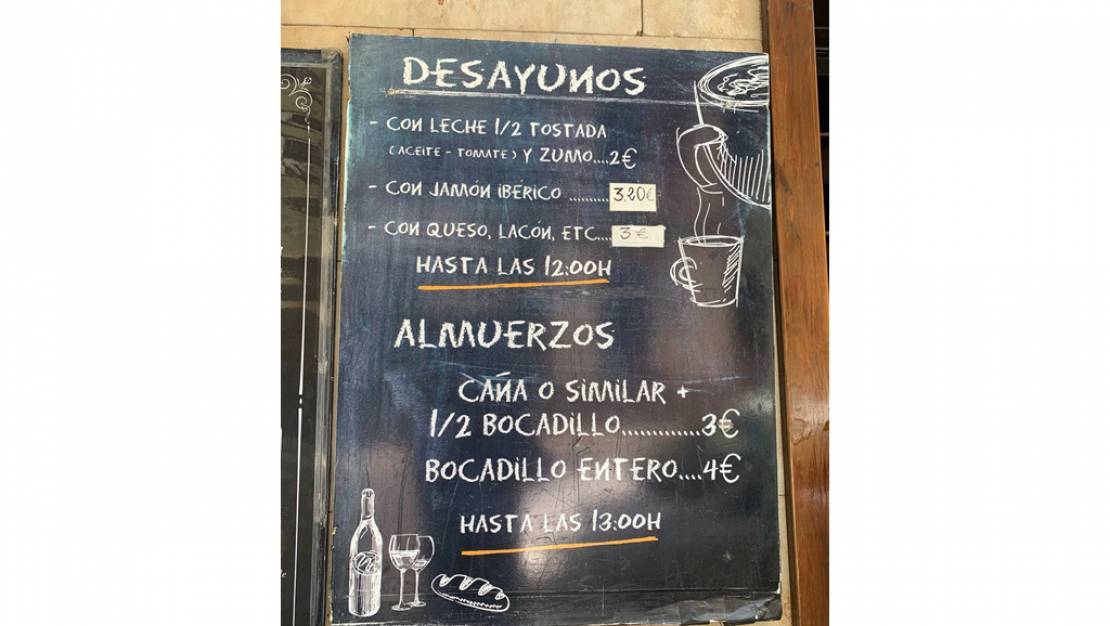 DESAYUNOS
- CON LECHE 1/2 TOSTADA
(ACEITE - TOMATE) Y ZUMO....2€
- CON JAMÓN IBÉRICO .......... 3,20€
- CON QUESO, LACÓN, ETC.... 3€
HASTA LAS 12:00H
ALMUERZOS
CAÑA O SIMILAR +
1/2 BOCADILLO.............3€
BOCADILLO ENTERO....4€
HASTA LAS 13:00H